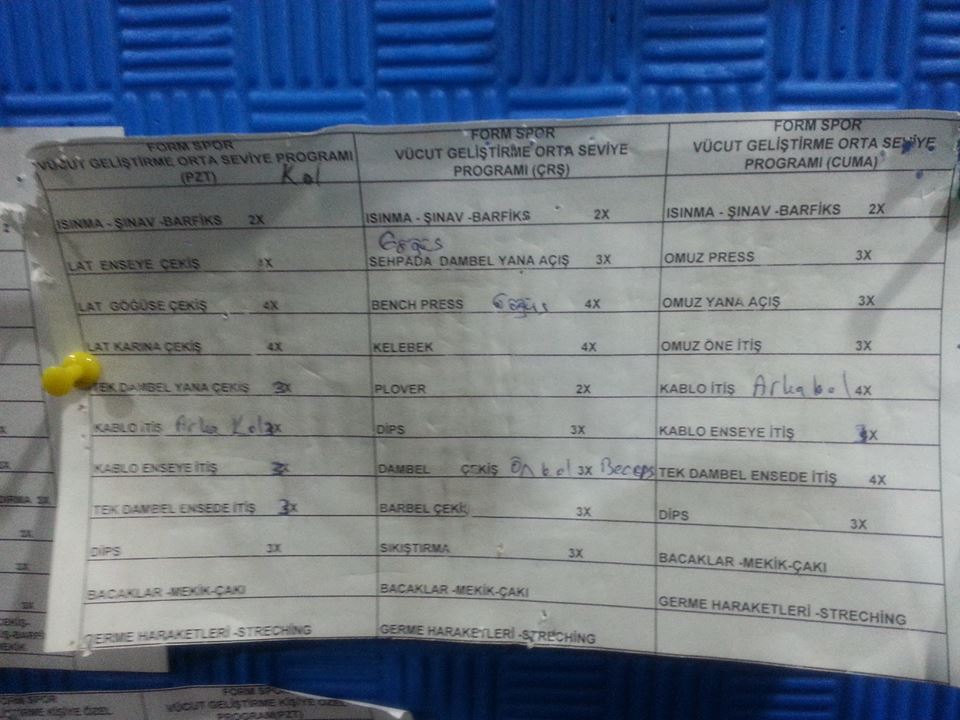 FORM SPOR
VÜCUT GELİŞTİRME ORTA SEVİYE PROGRAMI
(PZT) Kol
ISINMA - ŞINAV -BARFİKS 2X
LAT ENSEYE ÇEKİŞ X
LAT GÖĞÜSE ÇEKİŞ 4X
LAT KARINA ÇEKİŞ 4X
TEK DAMBEL YANA ÇEKİŞ 3X
KABLO İTİŞ Arka Kol 3X
KABLO ENSEYE İTİŞ 3X
TEK DAMBEL ENSEDE İTİŞ 3X
DİPS 3X
BACAKLAR -MEKİK-ÇAKI
GERME HARAKETLERİ -STRECHING
FORM SPOR
VÜCUT GELİŞTİRME ORTA SEVİYE
PROGRAMI (ÇRŞ)
ISINMA - ŞINAV -BARFİKS 2X
Göğüs
SEHPADA DAMBEL YANA AÇIŞ 3X
BENCH PRESS Göğüs 4X
KELEBEK 4X
PLOVER 2X
DİPS 3X
DAMBEL ÇEKİŞ Ön kol 3X Beceps
BARBEL ÇEKİŞ 3X
SIKIŞTIRMA 3X
BACAKLAR -MEKİK-ÇAKI
GERME HARAKETLERİ -STRECHING
FORM SPOR
VÜCUT GELİŞTİRME ORTA SEVİYE
PROGRAMI (CUMA)
ISINMA - ŞINAV -BARFİKS 2X
OMUZ PRESS 3X
OMUZ YANA AÇIŞ 3X
OMUZ ÖNE İTİŞ 3X
KABLO İTİŞ Arka kol 4X
KABLO ENSEYE İTİŞ X
TEK DAMBEL ENSEDE İTİŞ 4X
DİPS 3X
BACAKLAR -MEKİK-ÇAKI
GERME HARAKETLERİ -STRECHING
FORM SPOR
GELİŞTİRME KİŞİYE ÖZEL
FORM SPOR
VÜCUT GELİŞTİRME KİŞİYE ÖZEL
PROGRAM(PZT)